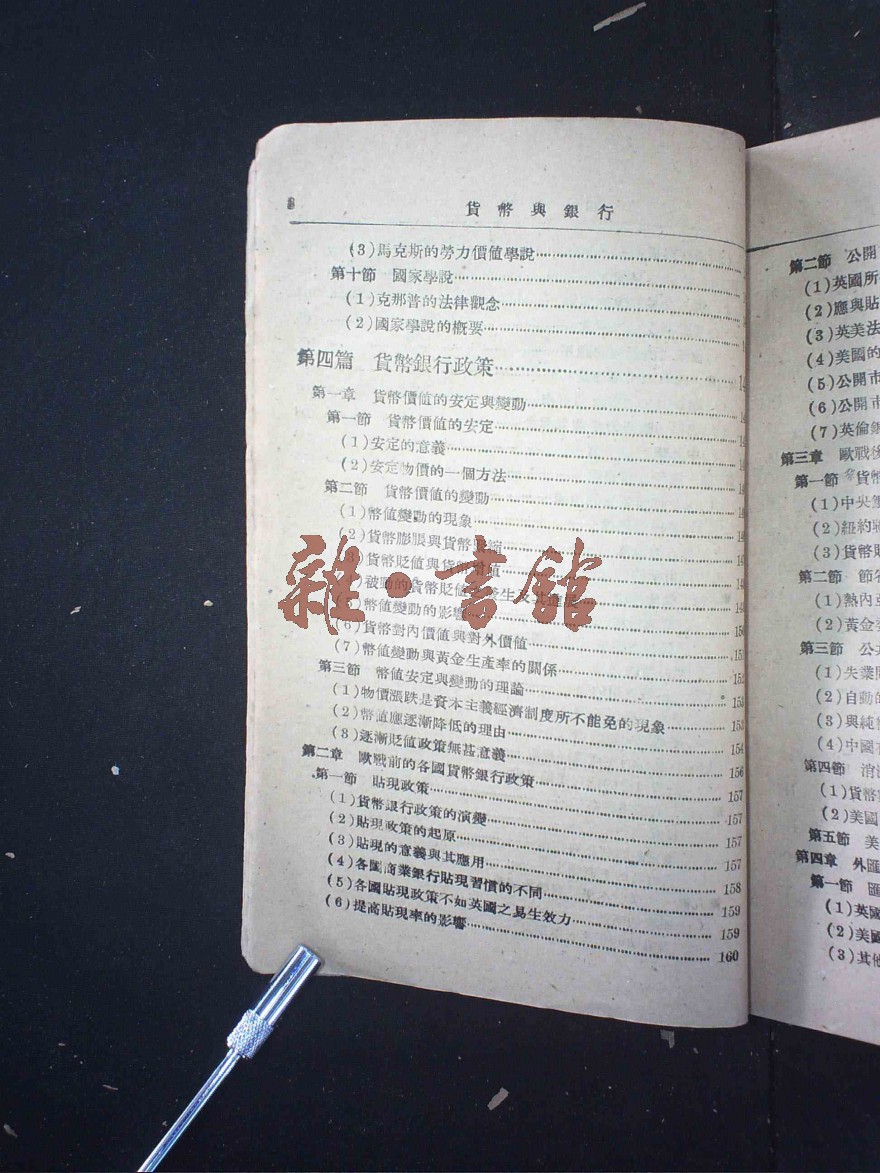 貨幣與銀行
(3)馬克斯的勞力價值學說
第十節 國家學說
(1)克那普的法律觀念
(2)國家學說的概要
第四篇 貨幣銀行政策
第一章 貨幣價值的安定與變動
第一節 貨幣價值的安定
(1)安定的意義
(2)安定物價的一個方法
第二節 貨幣價值的變動
(1)幣值變動的現象
(2)貨幣膨脹與貨幣
(3)貨幣貶值與貨幣增值
被動的貨幣貶值
幣值變動的影響 150
(6)貨幣對內價值與對外價值 151
(7)幣值變動與黃金生產率的關係 152
第三節 幣值安定與變動的理論 153
(1)物價漲跌是資本主義經濟制度所不能免的現象 153
(2)幣值應逐漸降低的理由 154
(3)逐漸貶值政策無甚意義 156
第二章 歐戰前的各國貨幣銀行政策 157
第一節 貼現政策 157
(1)貨幣銀行政策的演變 157
(2)貼現政策的起原 157
(3)貼現的意義與其應用 158
(4)各國商業銀行貼現習慣的不同 159
(5)各國貼現政策不如英國之易生效力 159
(6)提高貼現率的影響 160
雜·書館
第二節 公開
(1)英國所
(2)應與貼
(3)英美法
(4)美國的
(5)公開市
(6)公開市
(7)英倫銀
第三章 歐戰後
第一節 貨幣
(1)中央
(2)紐約
(3)貨幣
第二節 節省
(1)熱內亞
(2)黃金
第三節 公共
(1)失業
(2)自動的
(3)與純
(4)中國
第四節 消
(1)貨幣
(2)美國
第五節 美
第四章 外匯
第一節 匯
(1)英國
(2)美國
(3)其他